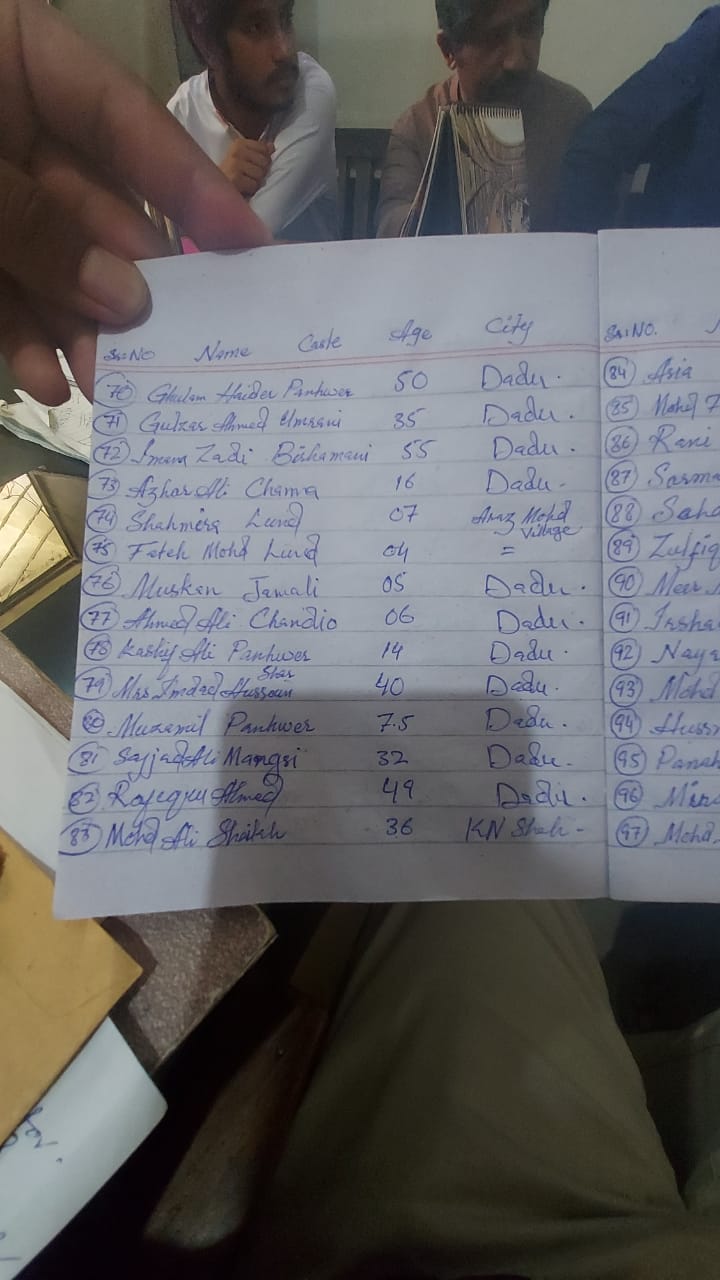 Sr:No Name Caste Age City
70 Ghulam Haider Panhwer 50 Dadu.
71 Gulzar Ahmed Umrani 35 Dadu.
72 Imam Zadi Bishamani 55 Dadu.
73 Azhar Ali Channa 16 Dadu.
74 Shahmira Lund 07 Araz Mohd Village
75 Fateh Mohd Lund 04 =
76 Muskan Jamali 05 Dadu.
77 Ahmed Ali Chandio 06 Dadu.
78 Kashif Ali Panhwer 14 Dadu.
79 Mrs Imdad Hussain Star 40 Dadu.
80 Muzamil Panhwer 7.5 Dadu.
81 Sajjad Ali Mangsi 32 Dadu.
82 Ahmed 49 Dadu.
83 Mohd Ali Shaikh 36 KN Shah-
Sr:NO. N
84 Asia
85 Mohd
86 Rani
87 Sarma
88 Saha
89 Zulfiq
90 Meer
91 Irsha
92 Naya
93 Mohd
94 Hussn
95 Panah
96
97 Mohd.